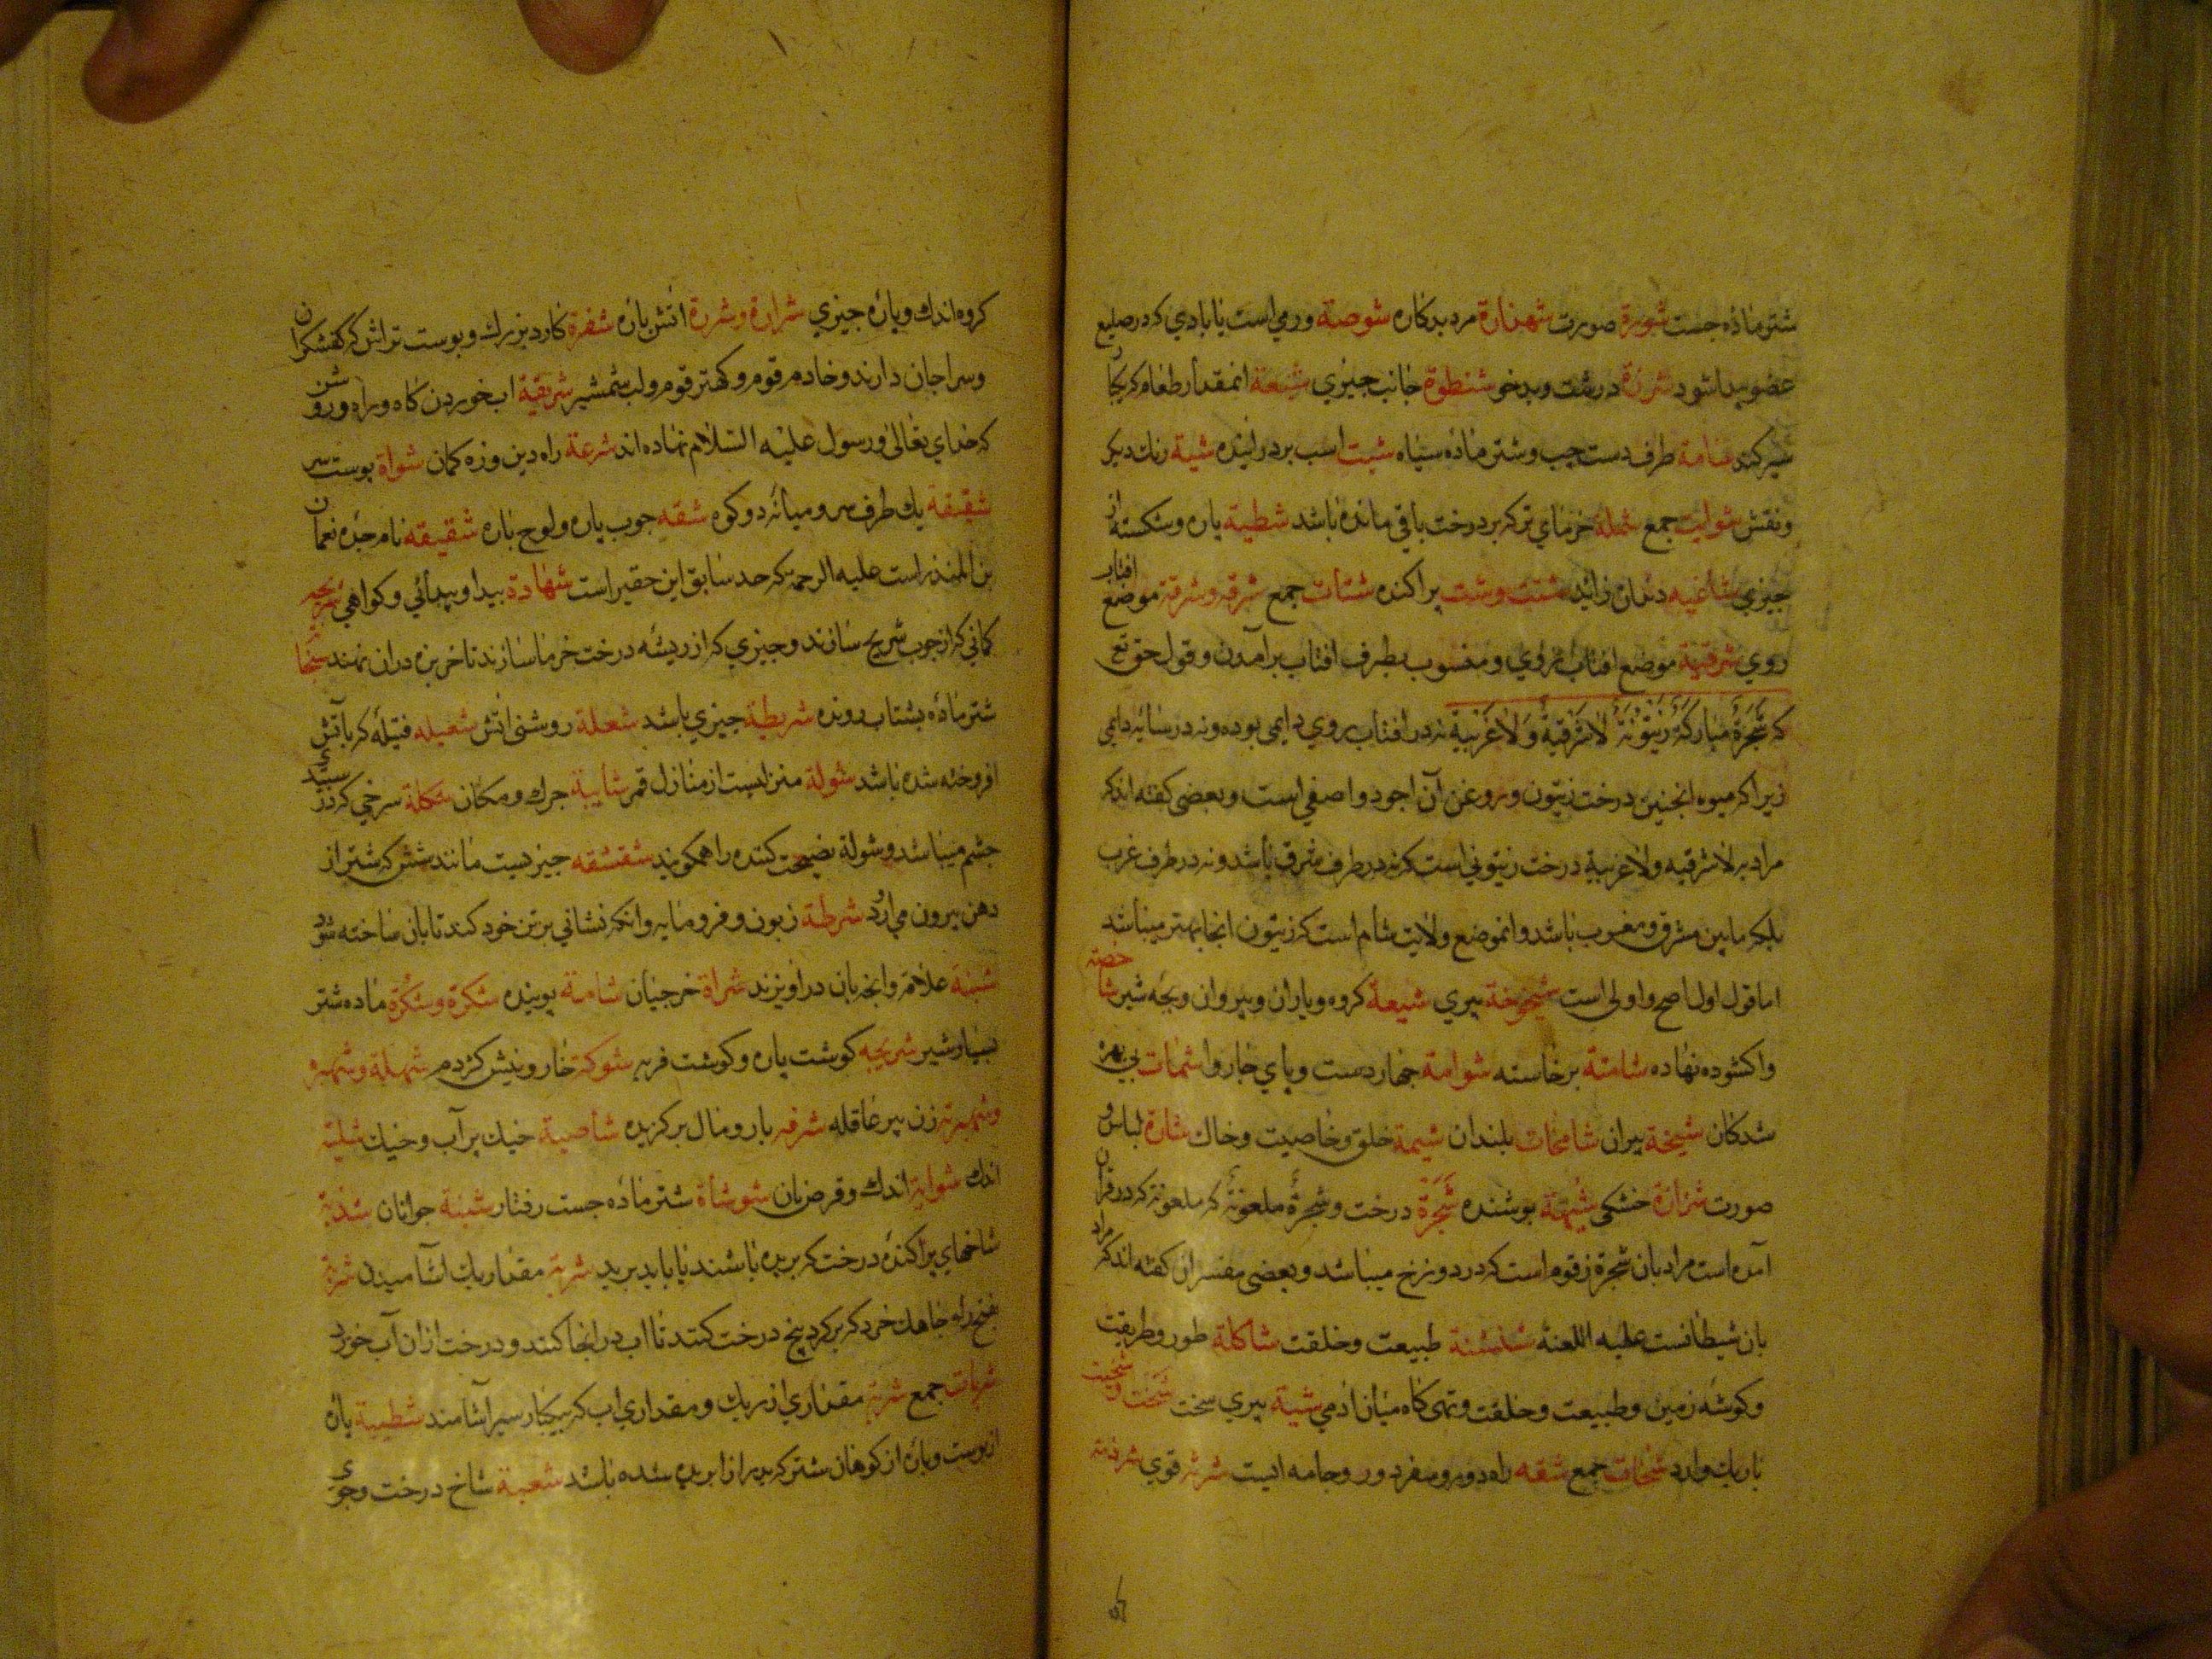 شتر ماده جست شورة صورت شهدارة مرد بدکاره شوصة ورمی است یا بادی که در ضلیع
عضو پیدا شود درشت و بدخو شنطوة جانب چیزی شبعة انمقدار طعام که یکبار
سیر کند شامة طرف دست چپ و شتر ماده سیاه شیت اسب بر دو لنده شیة رنك دیکر
ونقش شوایت جمع شملة خرمای تر که بر درخت باقی مانده باشد شطیة پاره و شکسته از
چیزی شاغیه دندان زائیده شتت وشت پراکنده شتات جمع شرقه وشرقة موضع افتاب
روی شرقیة موضع افتاب روی و منسوب بطرف افتاب برامدن وقول حق تع
که شَجَرَةٍ مُبارَکَةٍ زَیْتُونَةٍ لاٰشَرْقِیَّةٍ وَلاٰغَرْبِیَّةٍ نه در افتاب روی دایمی بوده و نه در سایه دایمی
زیرا که میوه انچنین درخت زیتون و روغن آن اجود و اصفی است و بعضی کفته اند که
مراد بر لا شرقیه ولا غربیة درخت زیتونی است که نه در طرف شرق باشد و نه در طرف غرب
بلکه مابین مشرق و مغرب باشد و انموضع ولایت شام است که زیتون انجا بهتر میباشد
اما قول اول اصح و اولی است شیخوخة پیری شیعة کروه و یاران و پیروان و بچه شیر شاخصة
واکشوده نهاده شامتة برخاسته شوامة چهار دست و پای چاروا شمات بی بهره
شدکان شیخة پیران شامخات بلندان شیمة خلق و خاصیت و خاك شارة لباس و
صورت شزازة خشکی پوشنده شَجَرَة درخت و شجرةٌ ملعونةٌ که ملعونه که در قران
آمده است مراد بان شجرة زقوم است که در دوزخ میباشد و بعضی مفسران کفته اند که مراد
بان شیطانست علیه اللعنة شنشنة طبیعت و خلقت شاکلة طور و طریقت
وکوشه زمین و طبیعت و خلقت و تهی کاه میان ادمی شیبة پیری سخت شخت و شخیت
باریك وارد جمع شقه راه دور و سفر دور و جامه ایست قوی شرذمة
کروه اندك و پاره چیزی شرارة وشررة اتش پاره شفرة کارد بزرك و پوست تراش که کفشکران
وسراجان دارند و خادم قوم و کهتر قوم ولب شمشیر شریقیة اب خوردن کاه و راه و روشن
که خدای تعالی و رسول علیه السلام نهاده اند شرعة راه دین و زه کمان شواة پوست سر
شقیقة یك طرف سر و میانه دو کوه شقه چوب پاره و لوح پاره شقیقه نام جده نعمان
بن المنذر است علیه الرحمه که جد سابق این حقیر است شهادة پیدا و پیدائی و کواهی شریجه
کمانی که از چوب شریج سازند و چیزی که از ریشه درخت خرما سازند تا خربزه دران نهند
شتر ماده بشتاب رونده شریطة چیزی باشد شعلة روشنی اتش شعیله فتیله که باتش
افروخته شده باشد شولة منزلیست از منازل قمر شایبة چرك و مکان شکلة سرخی که در سپیدی
چشم میباشد و شولة نصیحت کننده را هم کویند شقشقه چیزیست مانند شش که شتر از
دهن بیرون می آرد شرطة زبون و فرومایه و انکه نشانی بر تن خود کند تا بان شناخته شود
علامة وانچه بان در اویزند شراة خرجیان شامة بوینده شکرة وشکرة ماده شتر
بسیار شیر شریحه کوشت پاره و کوشت فربه شوکة خار و نیش کژدم شهلة وشهبره
وشهبرة زن پیر عاقله شرفه بار و مال برکزیده شاصیة خیك پر آب و خیك
اندك شوایة اندك و قرص نان شوشاة شتر ماده جست رفتار شببة جوانان شذبة
شاخهای پراکنده درخت که بریده باشند یا باید برید شربة مقدار یك آشامیدن شربة
بفتح راء چاهك خرد که بر کرد بیخ درخت کنند تا اب در انجا کنند و درخت ازان آب خورد
شربات جمع شربة مقداری از مریك و مقداری اب که بیکبار سیر آشامند شطیبة پاره
از پوست و پاره از کوهان شتر که بدراز ابریده شده باشد شعبة شاخ درخت و جوی